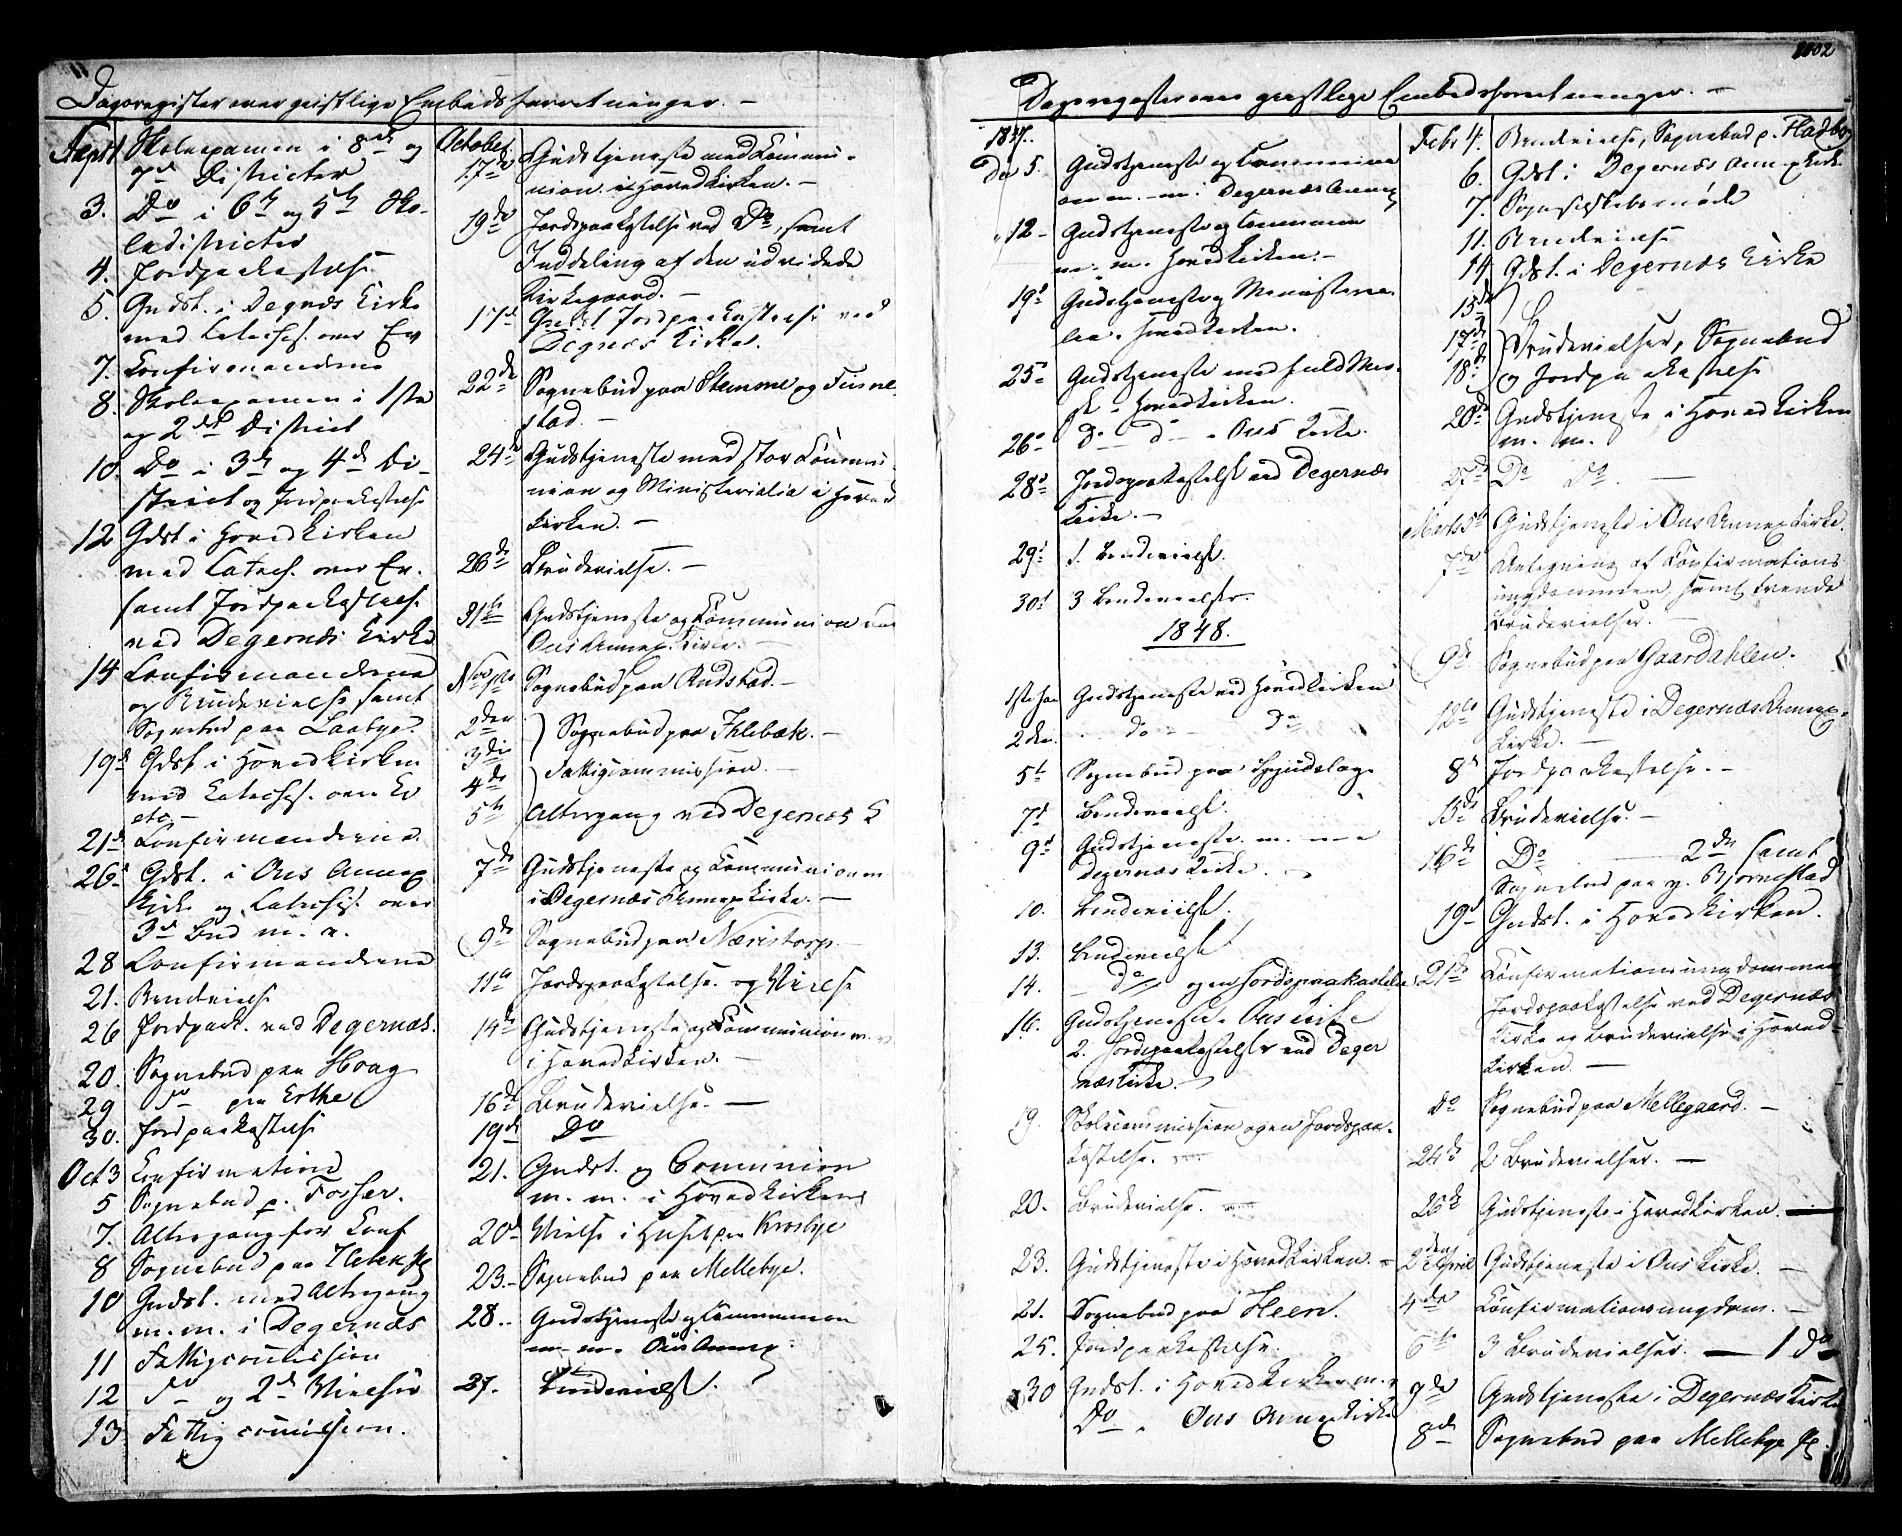 Dagsregister over geistlige Embedsforretninger. —
Sept 1 Skoleexamen i 8de og
7de Districter
3. Do i 6te og 5te Sko-
ledistricter
4. Jordpaakastelse
5. Gudst. i Degnæs Kirke
med Catechis. over Ev
7. Confirmanderne
8. Skoleexamen i 1ste
og 2det District
10. Do i 3de og 4de Di-
strict og Jordpaakastelse
12 Gdst i Hovedkirken
med Catech. over Ev.
samt Jordpaakastelse
ved Degernæs Kirke
14 Confirmanderne
og Brudevielse samt
Sognebud paa Laabye.
19d Gdst i Hovedkirken
med Catechis. over Ev
etc. —
21d Confirmanderne.
26d Gdst. i Øus Annex
Kirke og Catechis. over
3die Bud m. v.
28 Confirmanderne
21. Brudevielse
26 Jordpaak. ved Degernæs.
20. Sognebud paa Hoag
29 do paa Erthe
30. Jordpaakastelse
Oct 3 Confirmation
5 Sognebud p. Fosser.
7. Altergang for Conf
8 Sognebud paa
10 Gudst. med Altergang
m. m. i Degernæs
11 Fattigcommission
12 do og 2de Vielser
13 Fattigcommission.
October
17de Gudstjeneste med Commu-
nion i Hovedkirken. —
19de Jordspaakastelse ved Do, samt
Inddeling af den udvidede
Kirkegaard. —
17d Jordpaakastelse ved
Degnæs Kirke.
22de Sognebud paa Stemme og
stad. —
24de Gudstjeneste med stor Commu-
nion og Ministerialia i Hoved
kirken. —
26de Brudevielse. —
31te Gudstjeneste og Communion
Øus Annex Kirke. —
Nov 1ste Sognebud paa Rudstad. —
2den
3die Sognebud paa Ihlebæk. —
4de Fattigcommission. —
5te Altergang ved Degernæs K
7de Gudstjeneste og Communion
i Degernæs Annexkirke. —
9de Sognebud paa Næristorp. —
11te Jordspaakastelse og Vielse
14de Gudstjeneste og Communion m. v.
i Hovedkirken. —
16de Brudevielse. —
19de Do
21. Gudst. og Communion
m. m. i Hovedkirken
20d Vielse i Huset paa Krosbye
23. Sognebud paa Mellebye.
28. Gudstjeneste og Communion
m. m. Øus Annex
27. Brudevielse.
1102
Dagsregister over geistlige Embedsforretninger. —
1847.
Dec 5. Gudstjeneste og Communion
m. m. i Degernæs Annex
12 Gudstjeneste og Communion
m. m. Hovedkirken. —
19d Gudstjeneste og Ministeria-
lia i Hovedkirken.
25d Gudstjeneste med fuld Mes-
se i Hovedkirken.
26d do do i Øus Kirke.
28d Jordspaakastelse ved Degernæs
Kirke. —
29d 1 Brudevielse.
30d 3 Brudevielser.
1848.
1ste Jan Gudstjeneste ved Hovedkirken
2den do Do
5te Sognebud paa Spydslag
7d Brudevielse.
9d Gudstjeneste m. m.
Degernæs Kirke.
10. Brudevielse.
13. Brudevielse
14. do og en Jordspaakastelse
16. Gudstjeneste i Øus Kirke
2. Jordspaakastelser ved Deger
næs Kirke. —
19. Skolecommission og en Jordspaa-
kastelse.
20. Brudevielse.
23. Gudstjeneste i Hovedkirken. —
21. Sognebud paa Heen.
25. Jordpaakastelse.
30 Gudst. i Hovedkirken m. v
Do i Øus Annexkirke
Febr 4. Brudevielse, Sognebud p. Fladbye
6. Gdst i Degernæs Annexkirke
7. Sogneselskabsmøde
11. Brudevielse
14 Gdst. i Degernæs Kirke
15de
17de Brudevielser, Sognebud
18de og Jordpaakastelse
20de Gudstjeneste i Hovedkirken
m. m.
27de Do do. —
Marts 5te Gudstjeneste i Øus Annexkirke.
7de Antegning af Confirmations
ungdommen, samt trende
Brudevielser. —
9de Sognebud paa Gaardahlen.
12te Gudstjeneste i Degernæs Annex-
kirke. —
8d Jordpaakastelse. —
15de Brudevielse. —
16de Do — 2de samt
Sognebud paa n. Bjørnestad
19d Gudst. i Hovedkirken.
21de Confirmationsungdommen
Jordspaakastelse ved Degernæs
Kirke og Brudevielse i Hoved-
kirken. —
Do Sognebud paa Mellegaard. —
24de 2 Brudevielser. —
26de Gudstjeneste i Hovedkirken. —
2den April Gudstjeneste i Øus Kirke. —
4de Confirmationsungdom. —
6te 3 Brudevielser. — 1 do
9de Gudstjeneste i Degernæs Kirke
8de Sognebud paa Mellebye